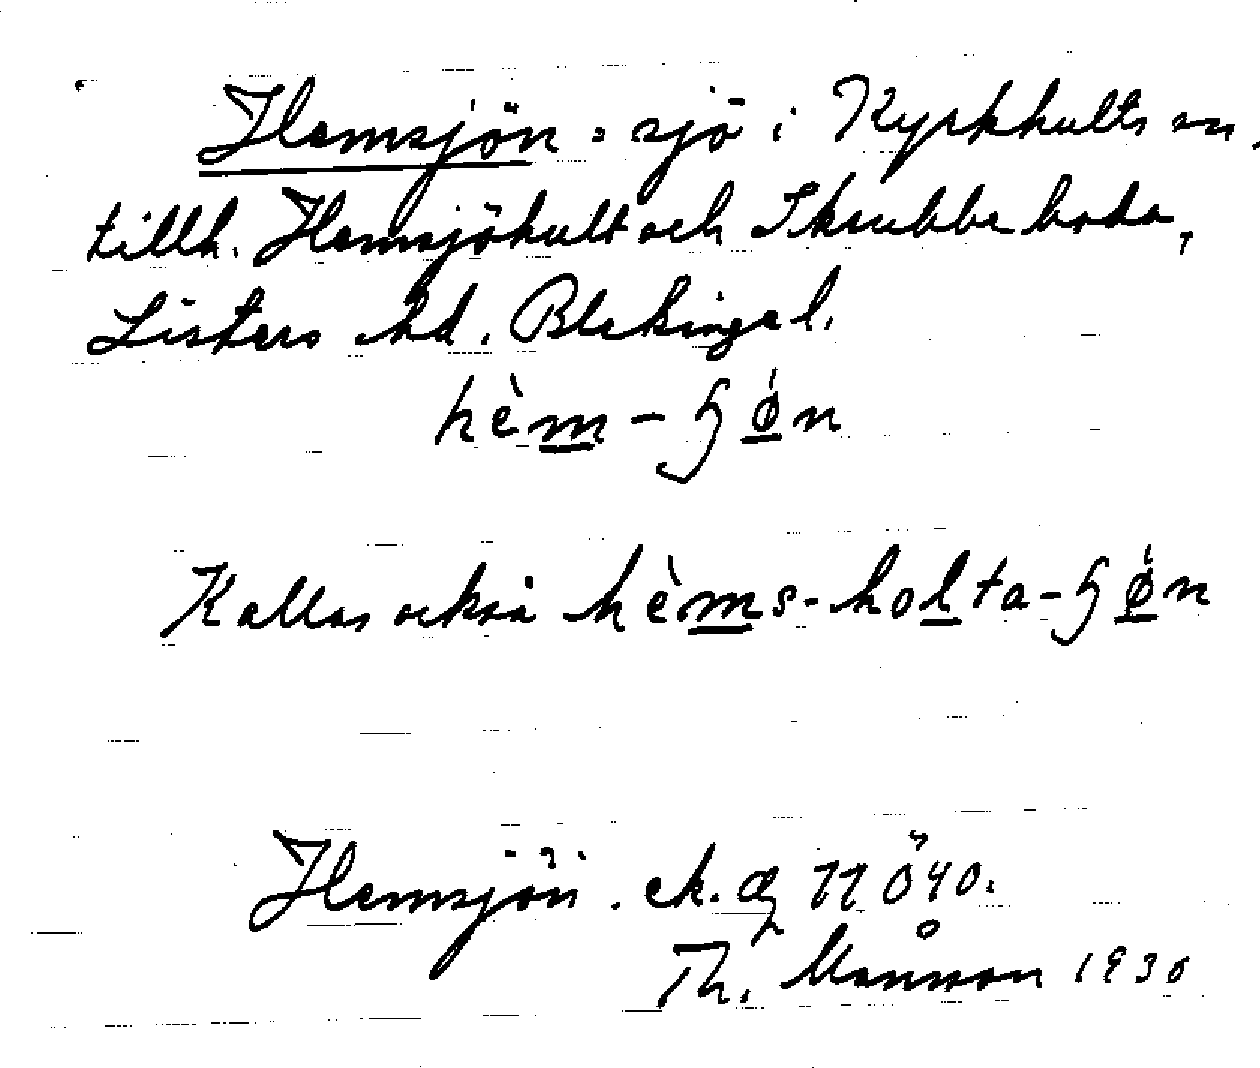 Hemsjön : sjö i Kyrkhults sn,
tillh. Hemsjökult och Skrubbeboda,
Listers hd. Blekinge l.
hèm-ʖǿn
Kallas också hèms-holta-ʖǿn
Hemsjön. ek.
Th. Månsson 1930